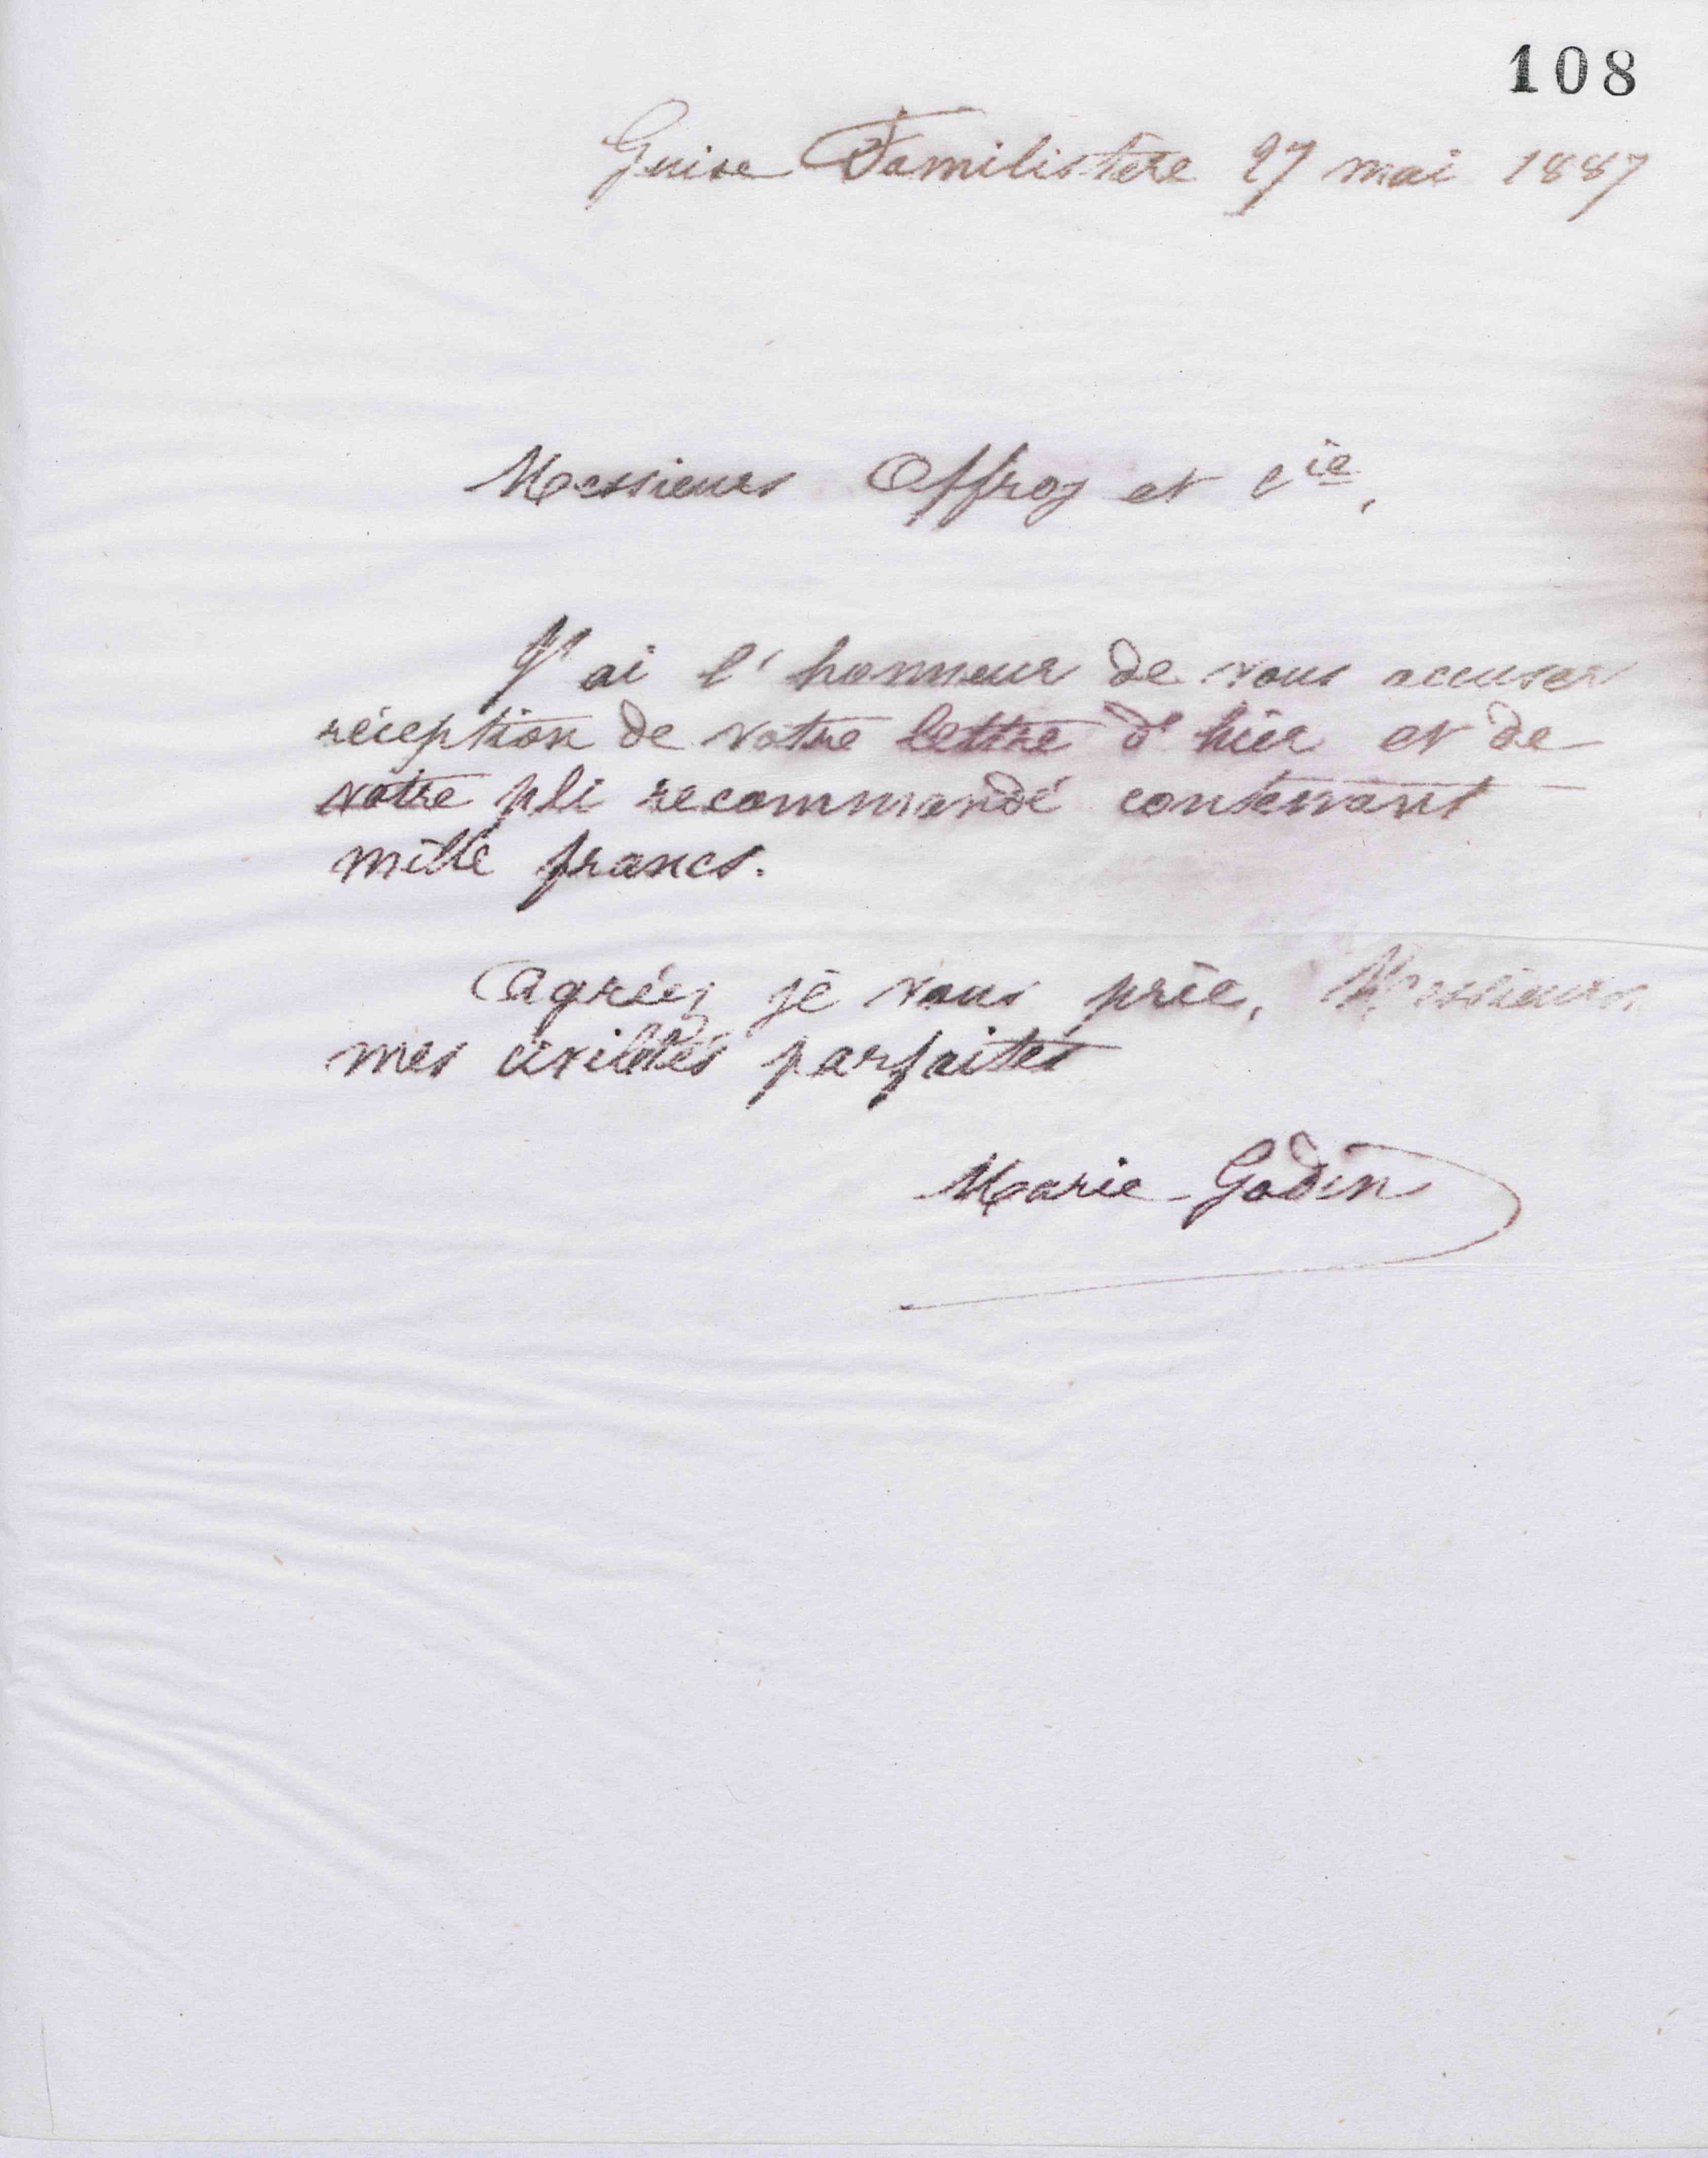 108
Guise Familistère 27 mai 1887
Messieurs Offroy et Cie,
J'ai l'honneur de vous accuser
réception de votre lettre d'hier et de
votre pli recommandé contenant
mille francs.
Agréez je vous prie, Messieurs
mes civilités parfaites
Marie Godin